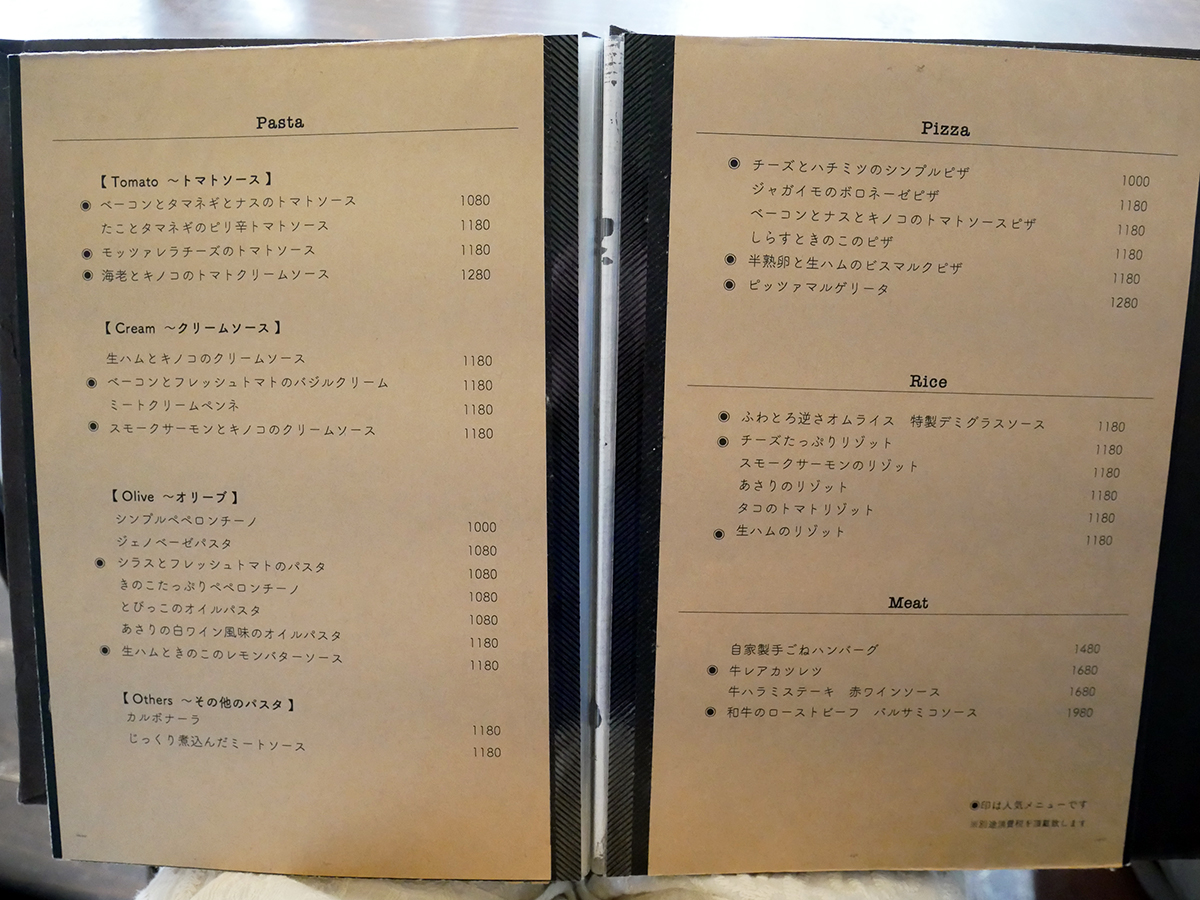 Pasta
【 Tomato ～トマトソース 】
◉ ベーコンとタマネギとナスのトマトソース 1080
たことタマネギのピリ辛トマトソース 1180
◉ モッツァレラチーズのトマトソース 1180
◉ 海老とキノコのトマトクリームソース 1280
【 Cream ～クリームソース 】
生ハムとキノコのクリームソース 1180
◉ ベーコンとフレッシュトマトのバジルクリーム 1180
ミートクリームペンネ 1180
◉ スモークサーモンとキノコのクリームソース 1180
【 Olive ～オリーブ 】
シンプルペペロンチーノ 1000
ジェノベーゼパスタ 1080
◉ シラスとフレッシュトマトのパスタ 1080
きのこたっぷりペペロンチーノ 1080
とびっこのオイルパスタ 1080
あさりの白ワイン風味のオイルパスタ 1180
◉ 生ハムときのこのレモンバターソース 1180
【 Others ～その他のパスタ 】
カルボナーラ 1180
じっくり煮込んだミートソース 1180
Pizza
◉ チーズとハチミツのシンプルピザ 1000
ジャガイモのボロネーゼピザ 1180
ベーコンとナスとキノコのトマトソースピザ 1180
しらすときのこのピザ 1180
◉ 半熟卵と生ハムのビスマルクピザ 1180
◉ ピッツァマルゲリータ 1280
Rice
◉ ふわとろ逆さオムライス　特製デミグラスソース 1180
◉ チーズたっぷりリゾット 1180
スモークサーモンのリゾット 1180
あさりのリゾット 1180
タコのトマトリゾット 1180
◉ 生ハムのリゾット 1180
Meat
自家製手ごねハンバーグ 1480
◉ 牛レアカツレツ 1680
牛ハラミステーキ　赤ワインソース 1680
◉ 和牛のローストビーフ　バルサミコソース 1980
◉印は人気メニューです
※別途消費税を頂戴致します